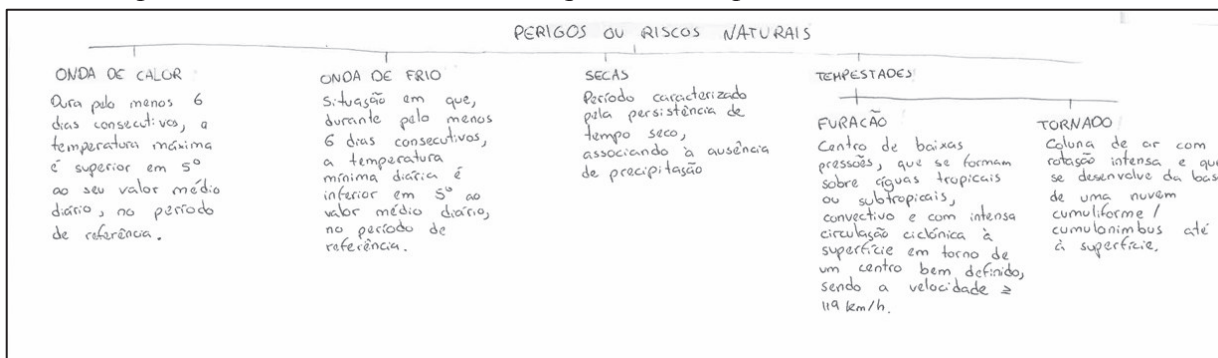 PERIGOS OU RISCOS NATURAIS
ONDA DE CALOR
Dura pelo menos 6
dias consecutivos, a
temperatura máxima
é superior em 5º
ao seu valor médio
diário, no período
de referência.
ONDA DE FRIO
Situação em que,
durante pelo menos
6 dias consecutivos,
a temperatura
mínima diária é
inferior em 5º ao
valor médio diário,
no período de
referência.
SECAS
Período caracterizado
pela persistência de
tempo seco,
associando à ausência
de precipitação
TEMPESTADES
FURACÃO
Centro de baixas
pressões, que se formam
sobre águas tropicais
ou subtropicais,
convectivo e com intensa
circulação ciclónica à
superfície em torno de
um centro bem definido,
sendo a velocidade ≥
119 km/h.
TORNADO
Coluna de ar com
rotação intensa e que
se desenvolve da base
de uma nuvem
cumuliforme /
cumulonimbus até
à superfície.